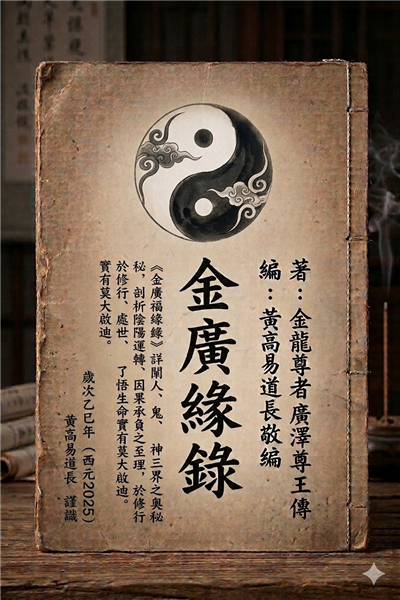 著：金龍尊者廣澤尊王傳
編：黃高易道長敬編
金廣緣錄
《金廣福緣錄》詳闡人、鬼、神三界之奧秘
秘，剖析陰陽運轉、因果承負之至理，於修行
於修行、處世、了悟生命實有莫大啟迪。
實有莫大啟迪。
歲次乙巳年（西元2025）
黃高易道長 謹識